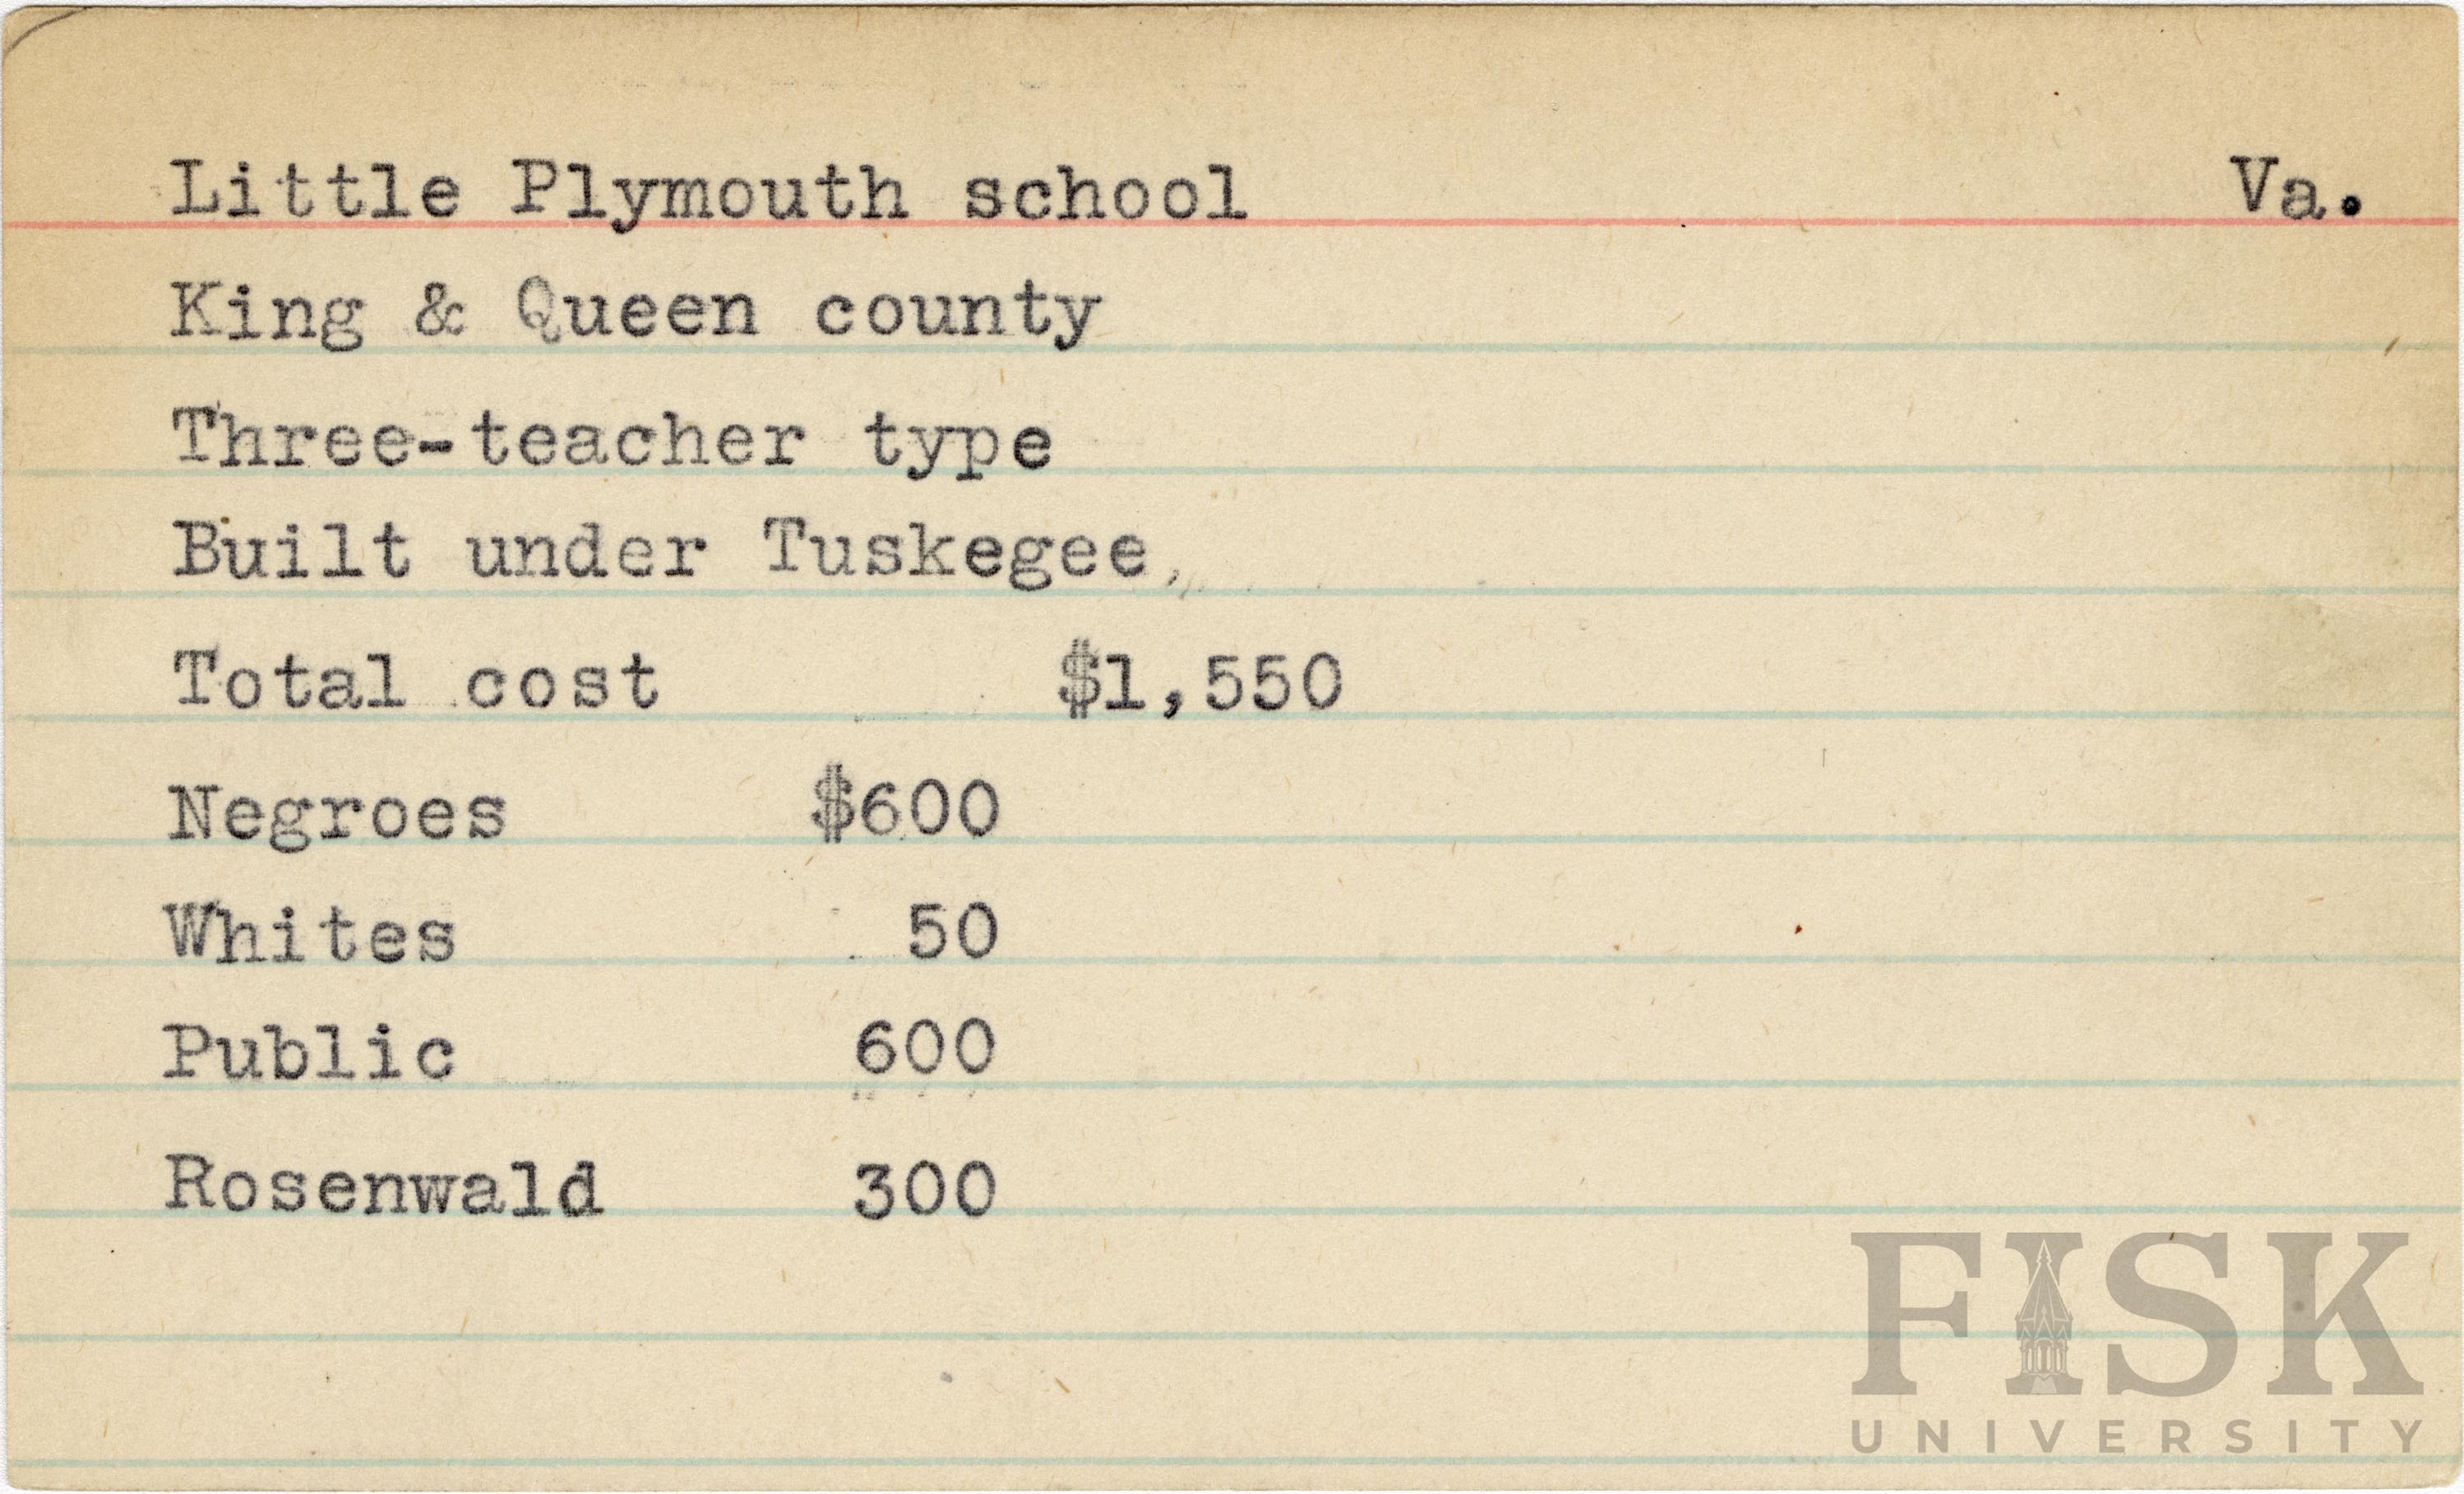 Little Plymouth school Va.
King & Queen county
Three-teacher type
Built under Tuskegee,
Total cost $1,550
Negroes $600
Whites 50
Public 600
Rosenwald 300
FISK
UNIVERSITY